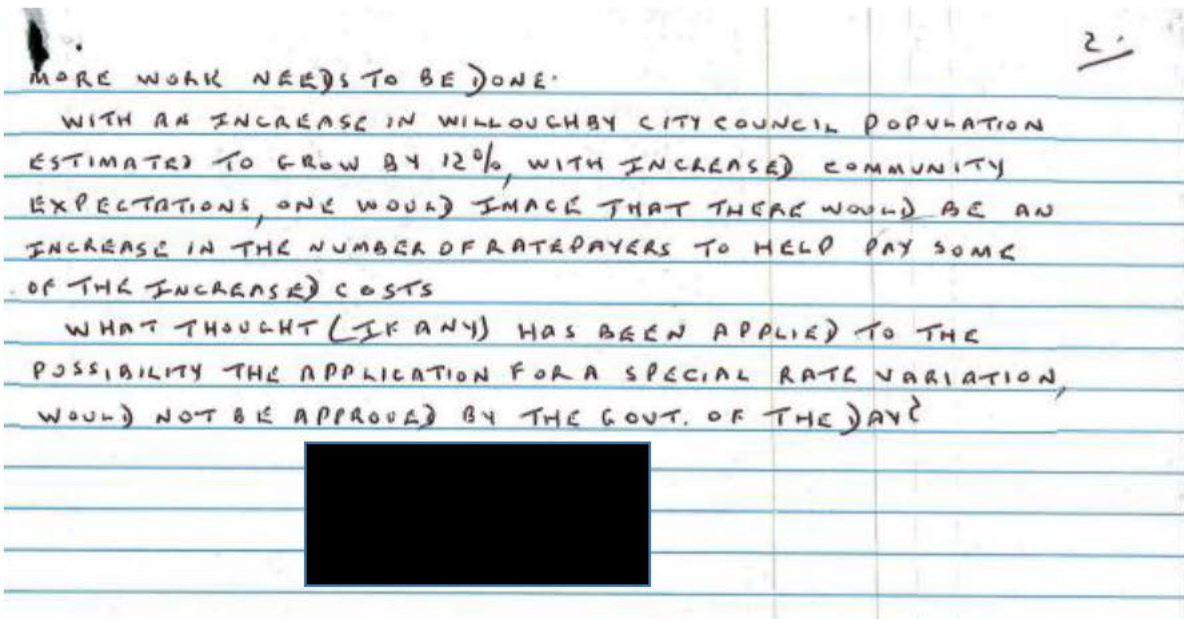 2.
MORE WORK NEEDS TO BE DONE.
WITH AN INCREASE IN WILLOUGHBY CITY COUNCIL POPULATION
ESTIMATED TO GROW BY 12%, WITH INCREASED COMMUNITY
EXPECTATIONS, ONE WOULD IMAGE THAT THERE WOULD BE AN
INCREASE IN THE NUMBER OF RATEPAYERS TO HELP PAY SOME
OF THE INCREASED COSTS
WHAT THOUGHT (IF ANY) HAS BEEN APPLIED TO THE
POSSIBILITY THE APPLICATION FOR A SPECIAL RATE VARIATION,
WOULD NOT BE APPROVED BY THE GOVT. OF THE DAY?